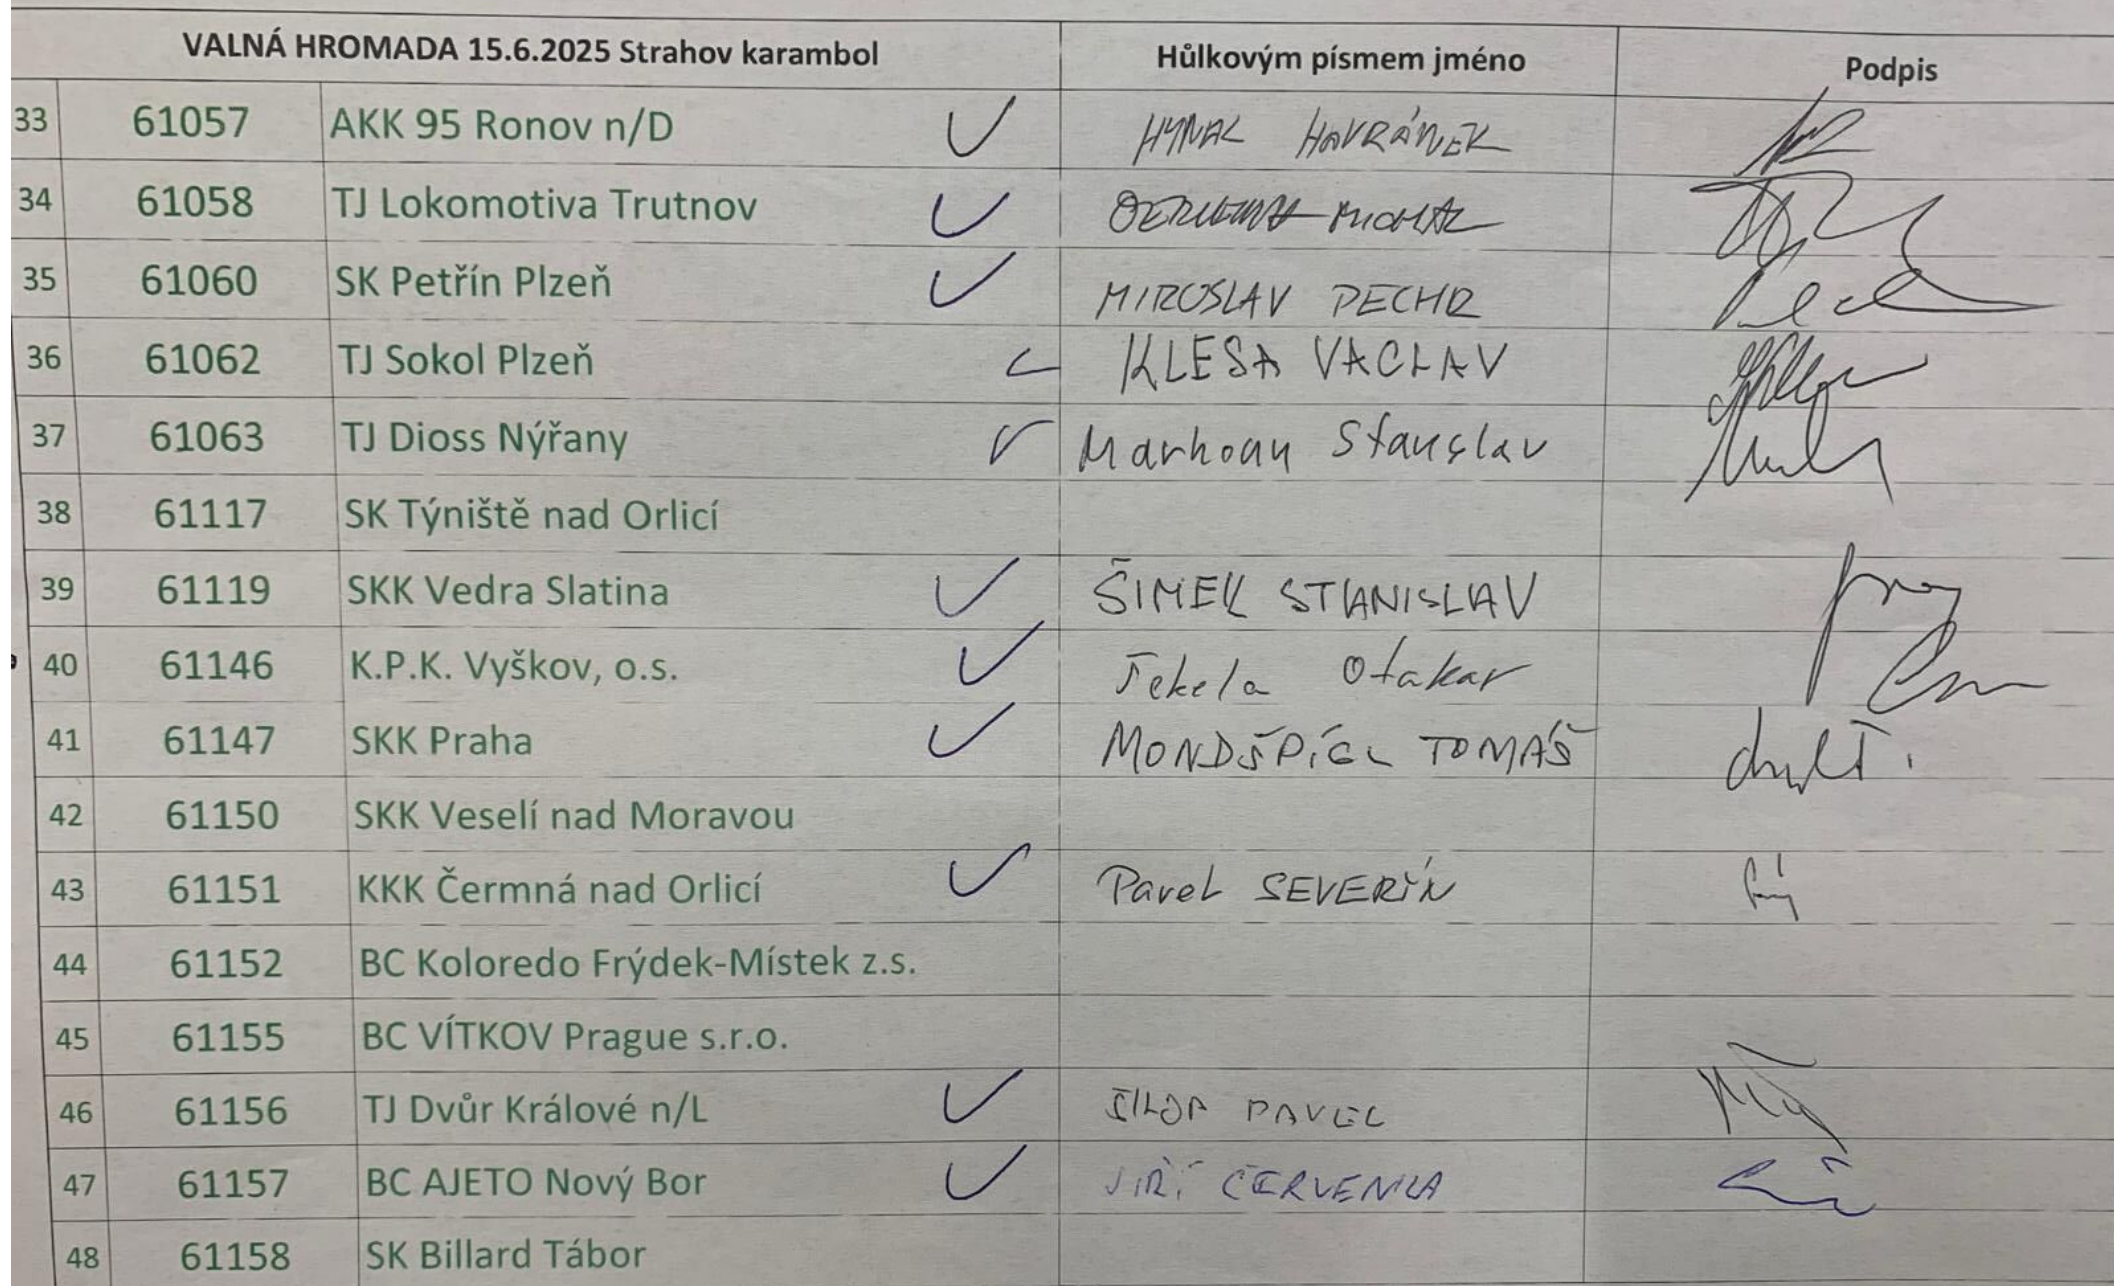 VALNÁ HROMADA 15.6.2025 Strahov karambol Hůlkovým písmem jméno Podpis
33 61057 AKK 95 Ronov n/D HYNAL HAVRÁNEK
34 61058 TJ Lokomotiva Trutnov MICHAL
35 61060 SK Petřín Plzeň MIROSLAV PECHR
36 61062 TJ Sokol Plzeň KLESA VACLAV
37 61063 TJ Dioss Nýřany Marhoun Stanislav
38 61117 SK Týniště nad Orlicí
39 61119 SKK Vedra Slatina ŠIMEK STANISLAV
40 61146 K.P.K. Vyškov, o.s. Tekela Otakar
41 61147 SKK Praha MONDŠPÍGL TOMÁŠ
42 61150 SKK Veselí nad Moravou
43 61151 KKK Čermná nad Orlicí Pavel SEVERÍN
44 61152 BC Koloredo Frýdek-Místek z.s.
45 61155 BC VÍTKOV Prague s.r.o.
46 61156 TJ Dvůr Králové n/L PAVEL
47 61157 BC AJETO Nový Bor JIŘÍ ČERVENKA
48 61158 SK Billard Tábor